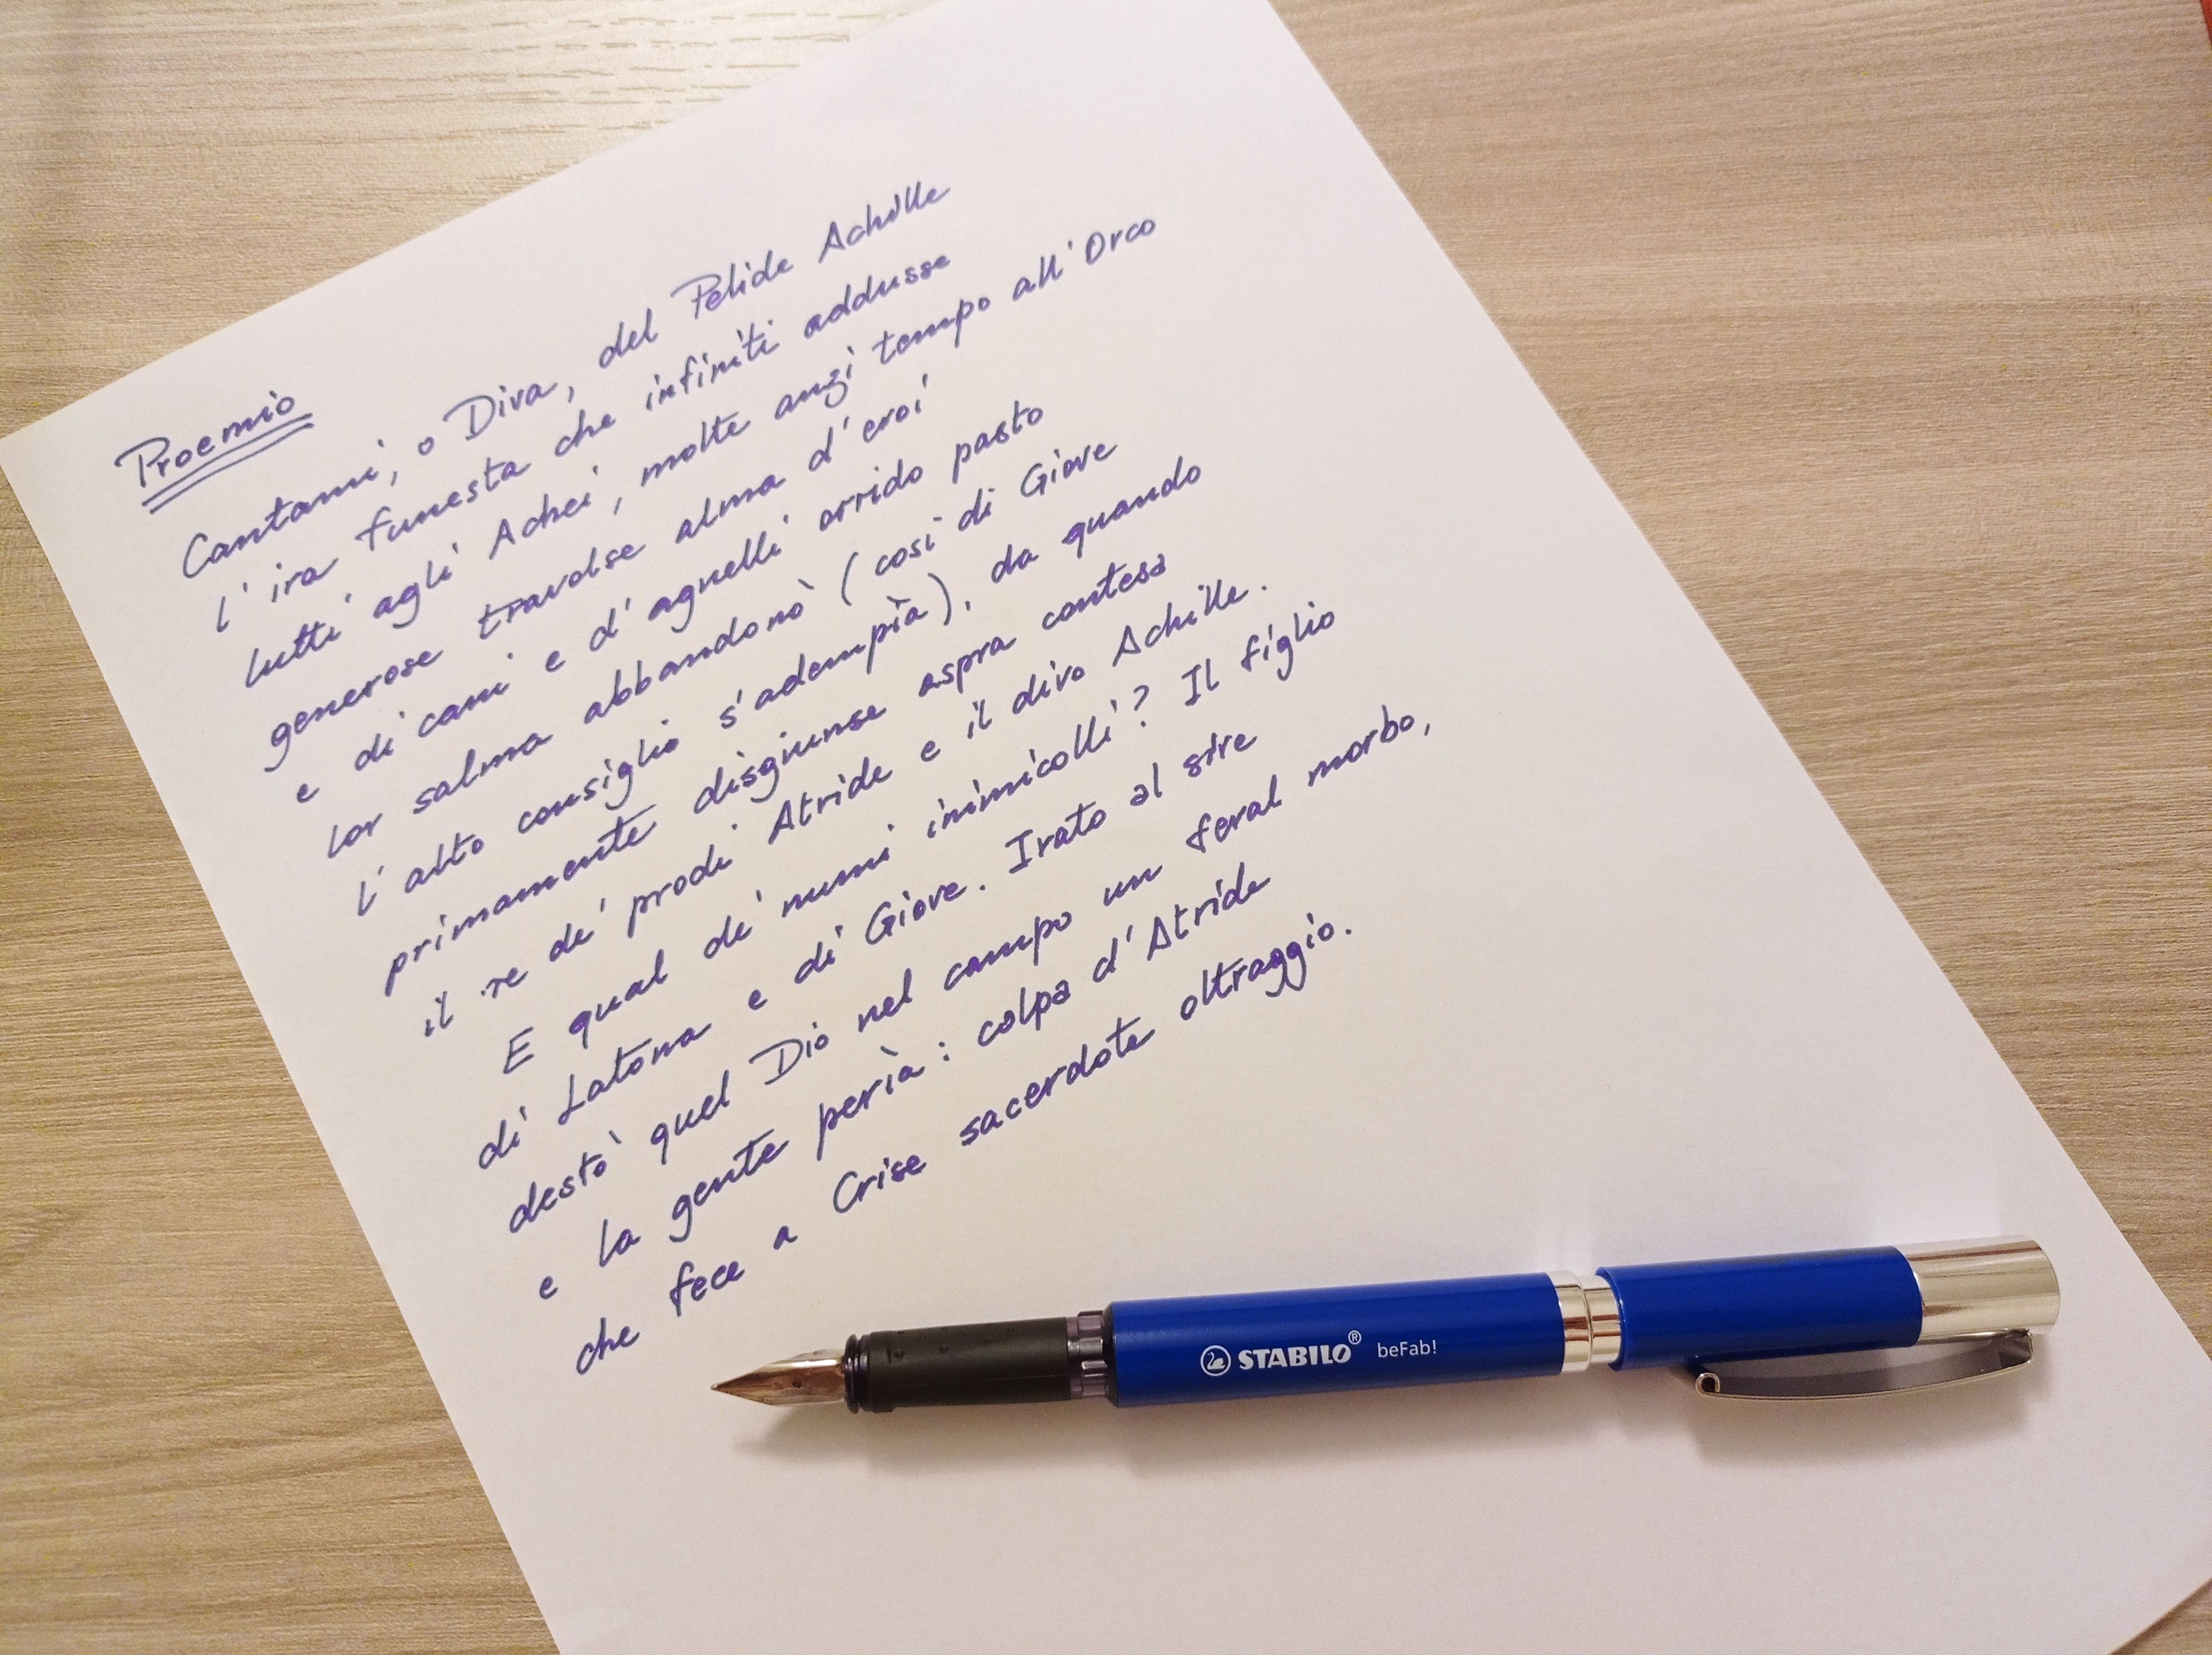 Proemio
Cantami, o Diva, del Pelide Achille
l'ira funesta che infiniti addusse
lutti agli Achei, molte anzi tempo all'Orco
generose travolse alma d'eroi
e di cani e d'agnelli orrido pasto
lor salma abbandonò (così di Giove
l'alto consiglio s'adempìa), da quando
primamente disgiunse aspra contesa
il re de' prodi Atride e il divo Achille.
E qual de' numi inimicolli? Il figlio
di Latona e di Giove. Irato al sire
destò quel Dio nel campo un feral morbo,
e la gente perìa: colpa d'Atride
che fece a Crise sacerdote oltraggio.
STABILO® beFab!